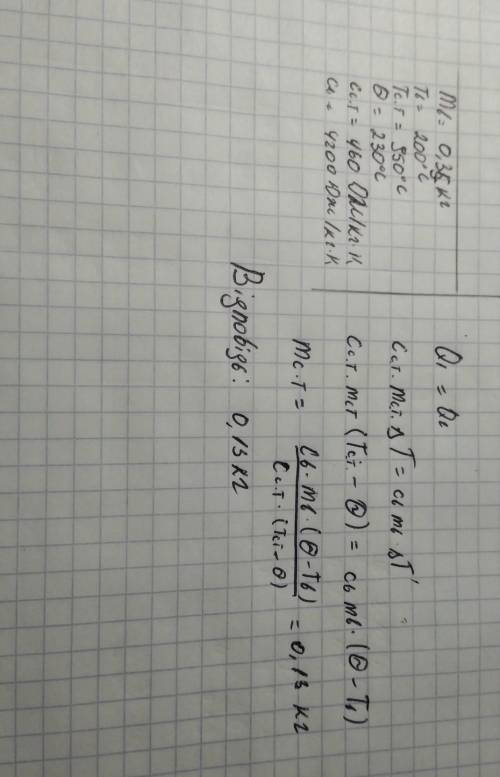 mв = 0,35 кг
Tв = 200°C
Tс.т = 950°C
Θ = 230°C
cс.т = 460 Дж/кг·К
cв = 4200 Дж/кг·К
Q₁ = Q₂
cс.т. mс.т. ΔT = cв mв · ΔT'
cс.т. mст (Tст - Θ) = cв mв · (Θ - Tв)
mс.т = cв · mв · (Θ - Tв) / cс.т · (Tст - Θ) = 0,13 кг
Відповідь: 0,13 кг